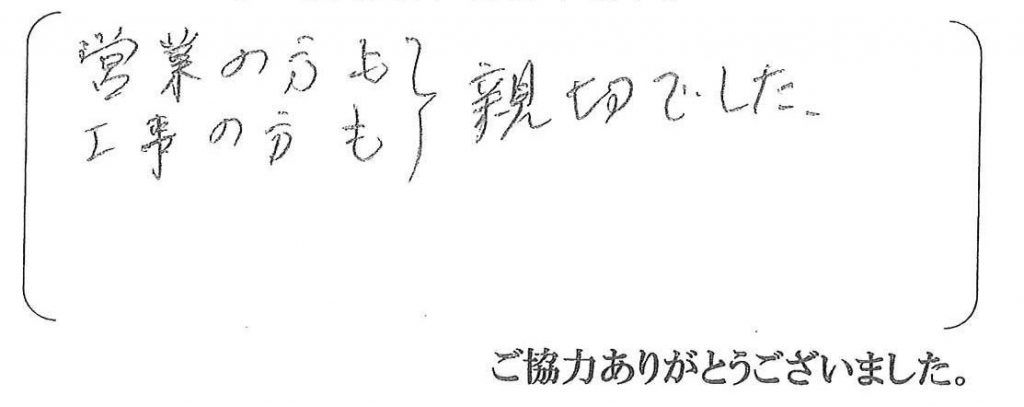 営業の方も
工事の方も
親切でした。
ご協力ありがとうございました。